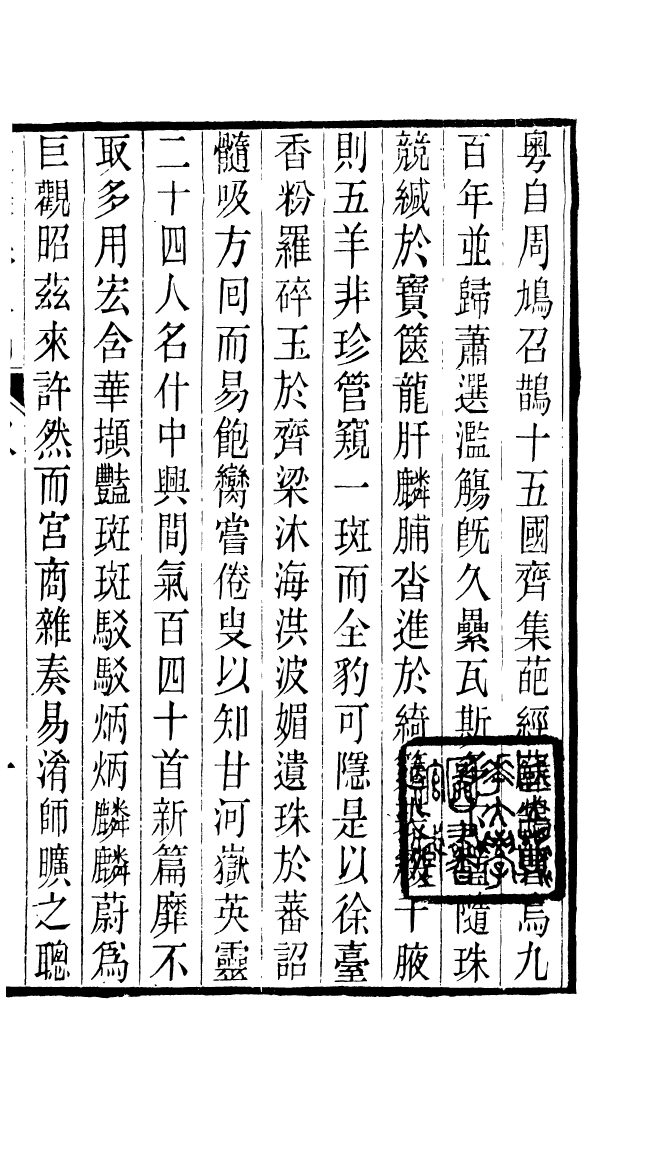 粵自周鳩召鵲十五國齊集葩經烏九
百年並歸蕭選濫觴旣久纍瓦斯多隨珠
競緘於寶篋龍肝麟脯沓進於綺筵千腋
則五羊非珍管窺一斑而全豹可隱是以徐臺
香粉羅碎玉於齊梁沐海洪波媚遺珠於蕃詔
髓吸方囘而易飽臠嘗倦叟以知甘河嶽英靈
二十四人名什中興間氣百四十首新篇靡不
取多用宏含華擷豔斑斑駁駁炳炳麟麟蔚爲
巨觀昭茲來許然而宮商雜奏易淆師曠之聰